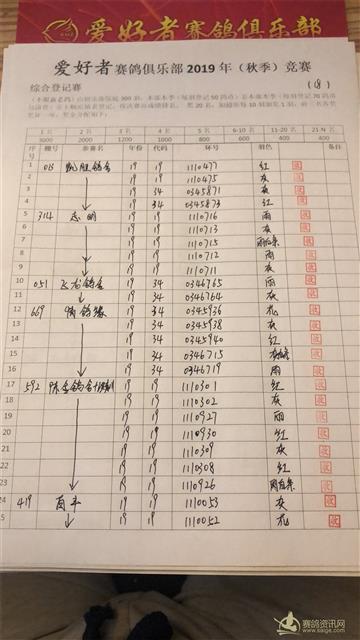 爱好者赛鸽俱乐部
爱好者赛鸽俱乐部2019年(秋季)竞赛
综合登记赛 (18)
1名 2名 3名 4名 5名 6-10名 11-20名 21-N名
3000 2000 1200 1000 800 600 400 400
序号 棚号 参赛名 年份 代码 环号 羽色 备注
1 013 凯胜鸽舍 19 19 1110477 红
2 19 19 1110475 灰
3 19 34 0345871 灰
4 19 34 0345873 红
5 314 志明 19 19 1110716 雨
6 19 19 1110713 灰
7 19 19 1110715
8 19 19 1110712 雨
9 19 19 1110711 灰
10 051 飞龙鸽舍 19 34 0346765 雨
11 19 34 0346764 灰
12 669 情鸽缘 19 34 0345936 花
13 19 34 0345938 灰
14 19 34 0345940 红
15 19 34 0346715
16 19 34 0346719 雨
17 592 19 19 1110301 红
18 19 19 1110302 灰
19 19 19 1110927 雨
20 19 19 1110930 红
21 19 19 1110309 灰
22 19 19 1110308 红
23 19 19 1110926
24 419 19 19 1110053 灰
25 19 19 1110052 花
赛鸽资讯网
www.saige.com